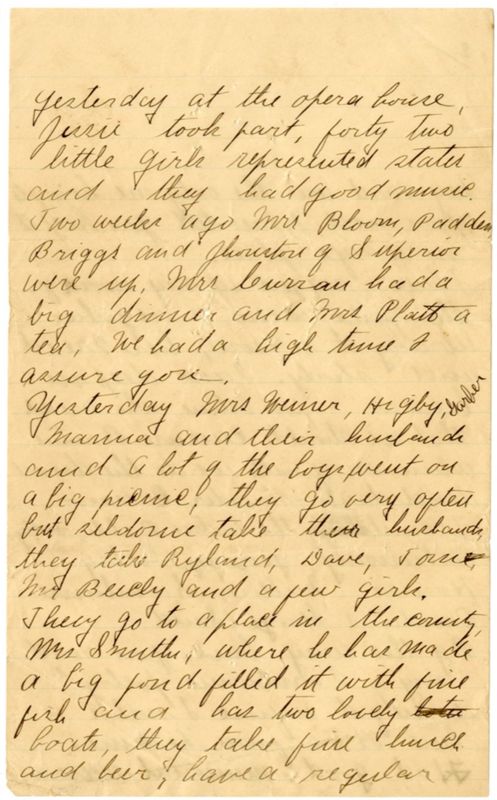 Yesterday at the opera house,
Jessie took part, forty two
little girls represented states
and they had good music.
Two weeks ago Mrs Bloom, Padden,
Briggs and Thurston of Superior
were up, Mrs Curran had a
big dinner and Mrs Platt a
tea, We had a high time I
assure you.
Yesterday Mrs Weiner, Higby, Garber
Manna and their husbands
and a lot of the boys went on
a big picnic, they go very often
but seldome take their husbands,
they take Ryland, Dave, Tom,
Mr and a few girls.
They go to a place in the county,
Mrs Smiths, where he has made
a big pond filled it with fine
fish and has two lovely
boats, they take fine lunch
and beer, have a regular